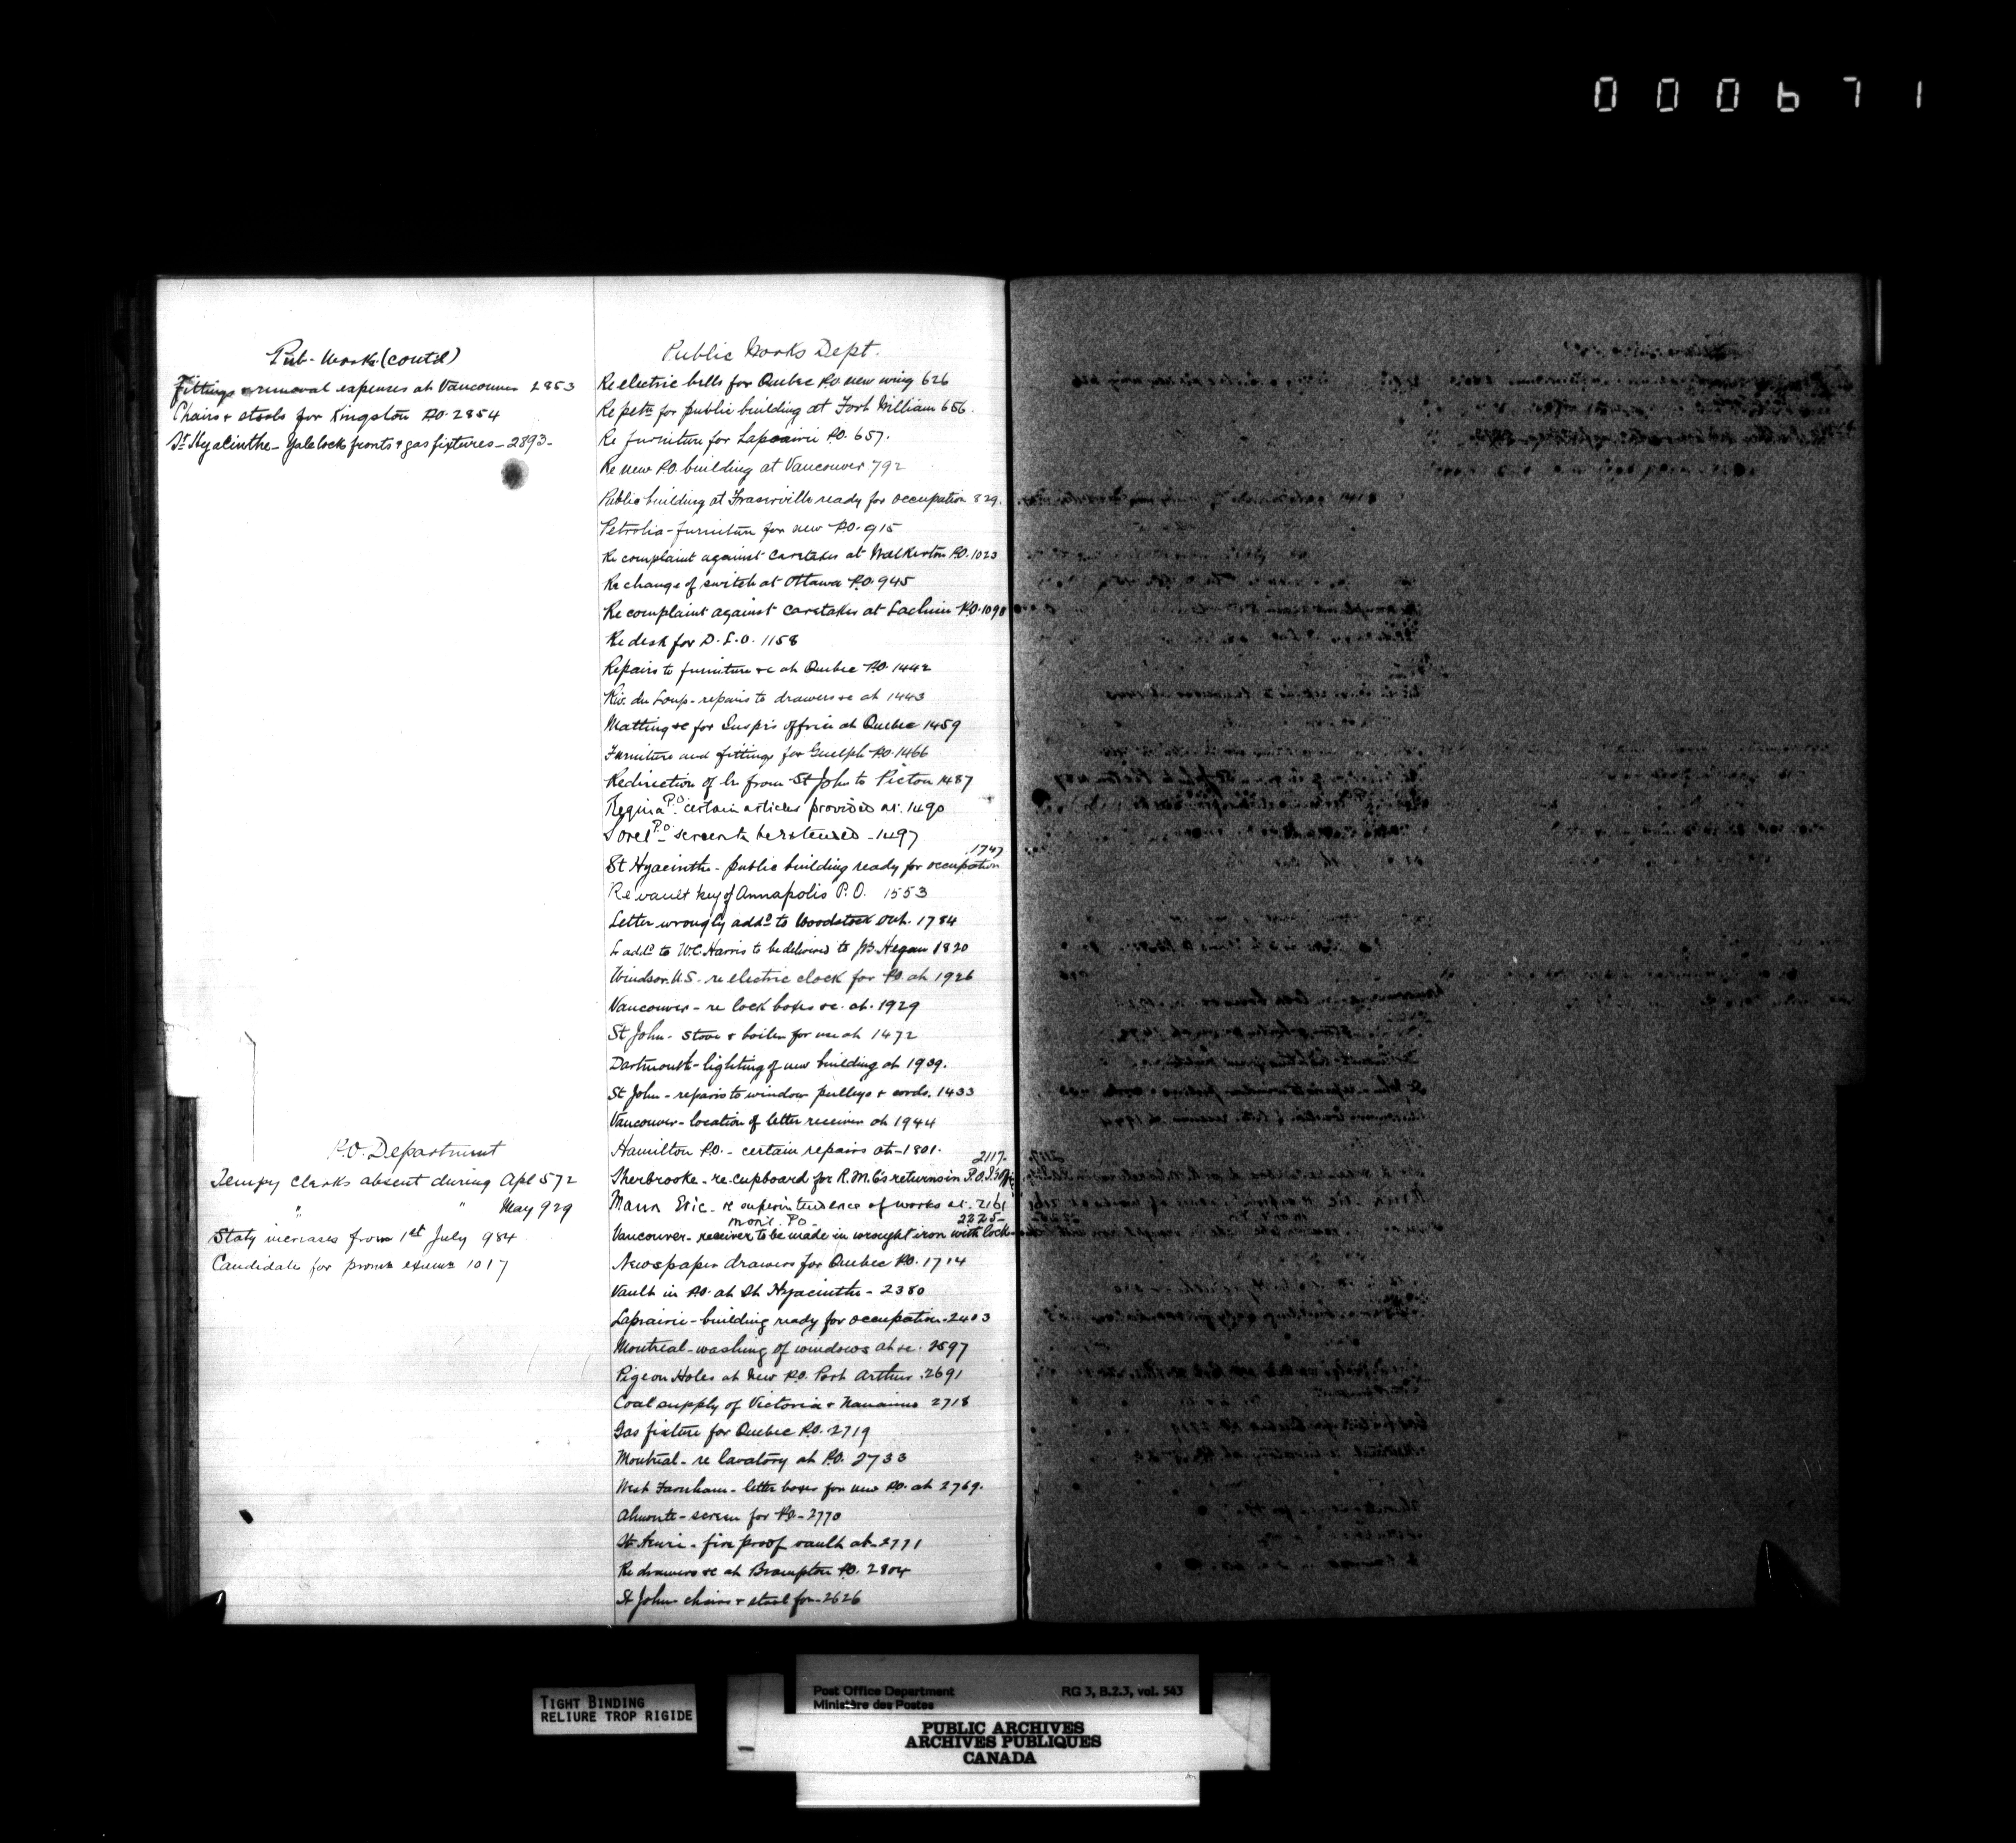 000671
Pub. Works (contd)
Fittings & removal expenses at Vancouver 2853
Chairs & stools for Kingston P.O. 2854
St Hyacinthe - Yale lock fronts & gas fixtures - 2893 -
P.O. Department
Tempy Clerks absent during Apl 572
" " May 929
Staty increases from 1st July 984
Candidate for promn examn 1017
Public Works Dept.
Re electric bells for Quebec P.O. new wing 626
Re petn for public building at Fort William 656.
Re furniture for Laprairie P.O. 657.
Re new P.O. building at Vancouver 792
Public building at Fraserville ready for occupation 829.
Petrolia - furniture for new P.O. 915
Re complaint against caretaker at Walkerton P.O. 1023
Re change of switch at Ottawa P.O. 945
Re complaint against caretaker at Lachine P.O. 1090
Re desk for D.L.O. 1158
Repairs to furniture &c at Quebec P.O. 1442
Riv. du Loup - repairs to drawers &c at 1443
Matting &c for Inspr's office at Quebec 1459
Furniture and fittings for Guelph P.O. 1466
Redirection of lr from St John to Picton 1487
Regina P.O. certain articles provided at. 1490
Sorel P.O. - screen to be - 1497
St Hyacinthe - public building ready for occupation 1747
Re vault key of Annapolis P.O. 1553
Letter wrongly addd to Woodstock Ont. 1784
Lr addd to W.C. Harris to be delivered to Hegan 1820
Windsor N.S. - re electric clock for P.O. at 1926
Vancouver - re lock boxes &c. at. 1929
St John - Stove & boiler for use at 1472
Dartmouth - lighting of new building at 1939.
St John - repairs to window pulleys & cords. 1433
Vancouver - location of letter receiver at 1944
Hamilton P.O. - certain repairs at - 1801.
Sherbrooke - re cupboard for R.M.C's returns in P.O.I's 2117.
Mann Eric - re superintendence of works at. 2161
Mont'l. P.O. -
Vancouver - receiver to be made in wrought iron with lock - 2225 -
Newspaper drawers for Quebec P.O. 1714
Vault in P.O. at St Hyacinthe - 2380
Laprairie - building ready for occupation - 2403
Montreal - washing of windows at &c. 2597
Pigeon Holes at New P.O. Port Arthur. 2691
Coal supply of Victoria & Nanaimo 2718
Gas fixture for Quebec P.O. 2719
Montreal - re lavatory at P.O. 2733
West Farnham - letter boxes for new P.O. at 2769.
Almonte - screen for P.O - 2770
St Henri - fire proof vault at - 2771
Re drawers &c at Brampton P.O. 2804
St John chairs & stool for - 2626
TIGHT BINDING
RELIURE TROP RIGIDE
Post Office Department
Ministère des Postes
RG 3, B.2.3, vol. 543
PUBLIC ARCHIVES
ARCHIVES PUBLIQUES
CANADA